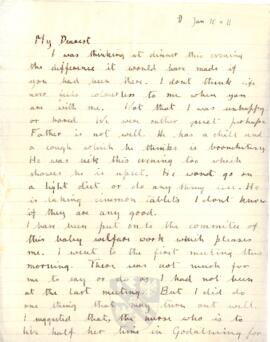 Jan 10 11
My Dearest
I was thinking at dinner this evening
the difference it would have made if
you had been there. I dont think life
ever feels colourless to me when you
are with me. Not that I was unhappy
or bored. We were rather quiet perhaps
Father is not well. He has a chill and
a cough which he thinks is bronchitis.
He was sick this evening too which
shows he is upset. He wont go on
a light diet or do any thing wise. He
is taking cinnamon tablets I dont know
if they are any good.
I have been put on to the committee of
this baby welfare work which pleases
me. I went to the first meeting this
morning. There was not much for
me to say or do as I had not been
at the last meeting. But I did do
one thing that may turn out well.
I suggested that the nurse who is to
live half her time in Godalming for